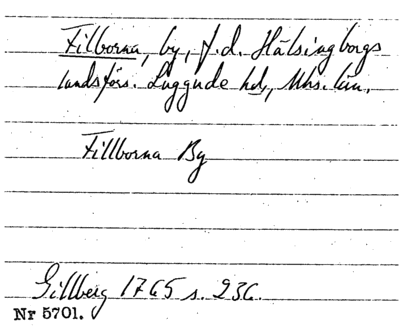 Filborna, by, f.d. Hälsingborgs
landsförs. Luggude hd, Mhs. län.
Fillborna By
Gillberg 1765 s. 236.
Nr 5701.